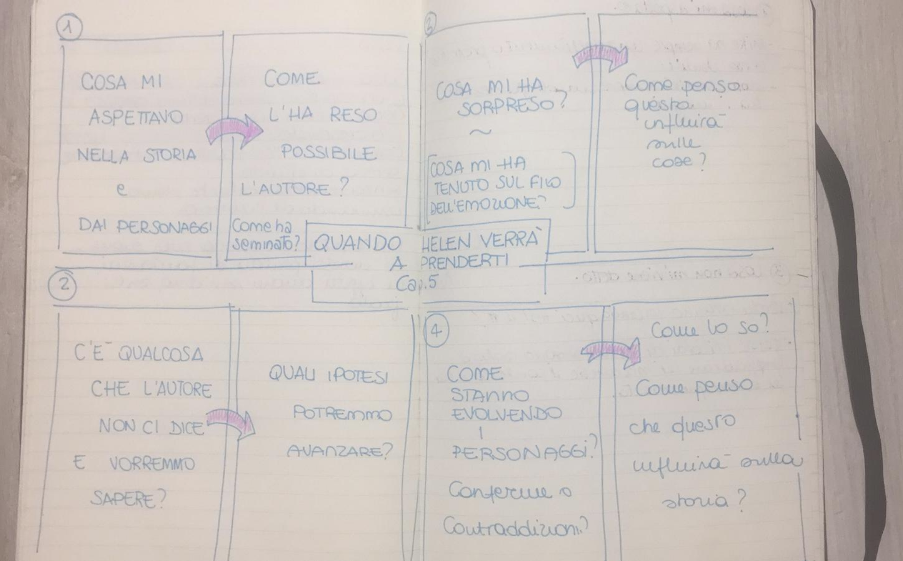 1
COSA MI
ASPETTAVO
NELLA STORIA
e
DAI PERSONAGGI
COME
L'HA RESO
POSSIBILE
L'AUTORE?
Come ha
seminato?
3
COSA MI HA
SORPRESO?
~
COSA MI HA
TENUTO SUL FILO
DELL'EMOZIONE?
Come penso
questo
influirà
sulle
cose?
QUANDO HELEN VERRÀ
A PRENDERTI
Cap.5
2
C'È QUALCOSA
CHE L'AUTORE
NON CI DICE
E VORREMMO
SAPERE?
QUALI IPOTESI
POTREMMO
AVANZARE?
4
COME
STANNO
EVOLVENDO
I
PERSONAGGI?
Conferme o
Contraddizioni?
Come lo so?
Come penso
che questo
influirà sulla
storia?